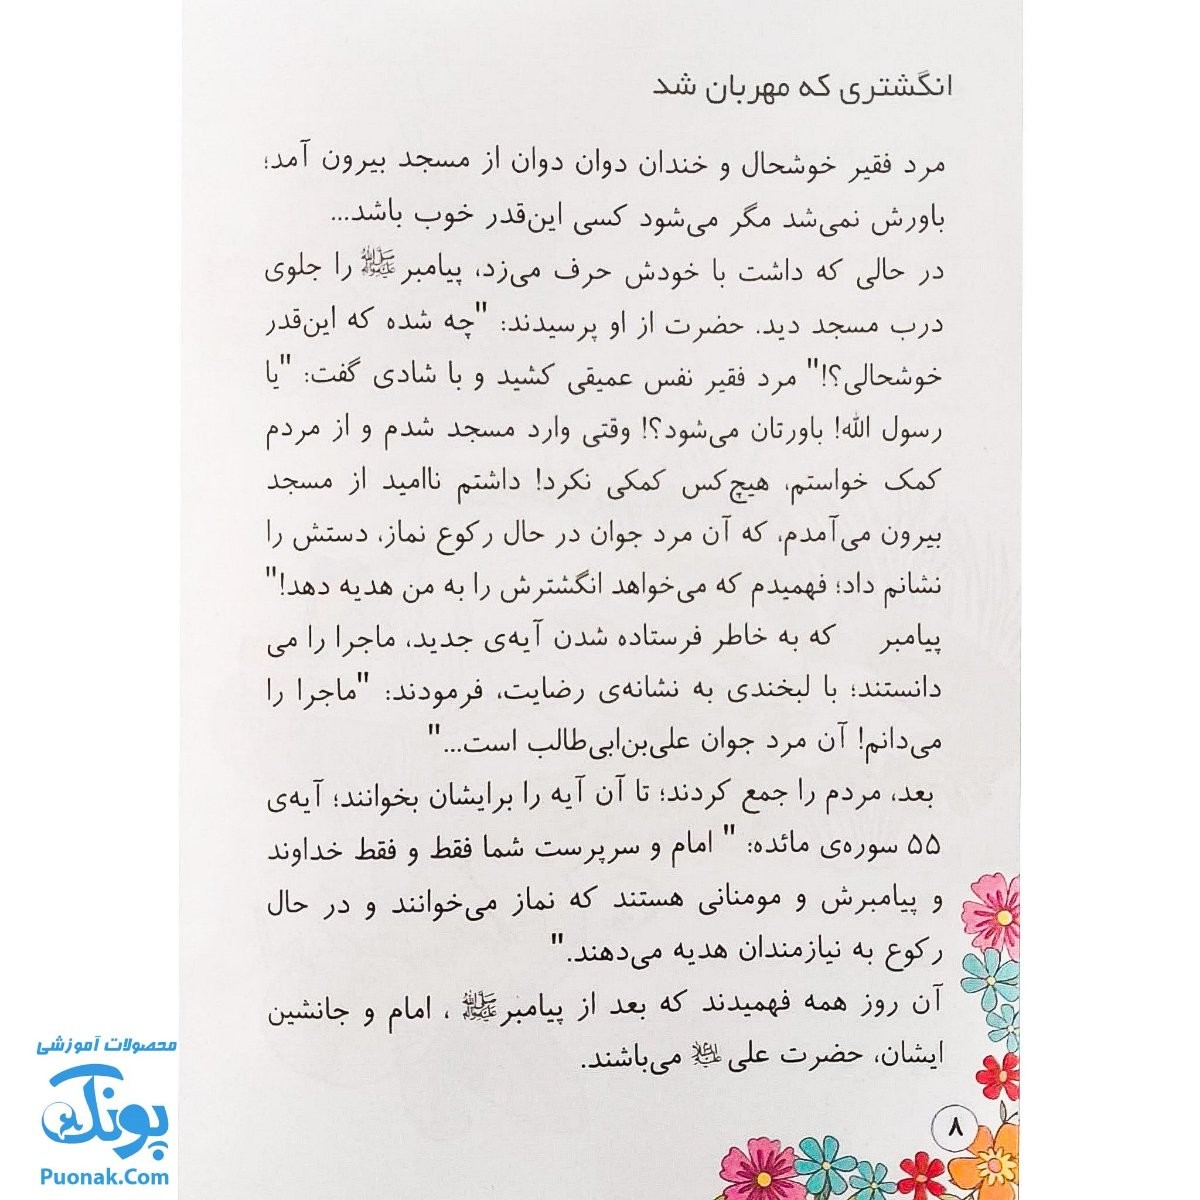 انگشتری که مهربان شد
مرد فقیر خوشحال و خندان دوان دوان از مسجد بیرون آمد؛
باورش نمی‌شد مگر می‌شود کسی این‌قدر خوب باشد...
در حالی که داشت با خودش حرف می‌زد، پیامبرﷺ را جلوی
درب مسجد دید. حضرت از او پرسیدند: "چه شده که این‌قدر
خوشحالی؟!" مرد فقیر نفس عمیقی کشید و با شادی گفت: "یا
رسول الله! باورتان می‌شود؟! وقتی وارد مسجد شدم و از مردم
کمک خواستم، هیچ‌کس کمکی نکرد! داشتم ناامید از مسجد
بیرون می‌آمدم، که آن مرد جوان در حال رکوع نماز، دستش را
نشانم داد؛ فهمیدم که می‌خواهد انگشترش را به من هدیه دهد!"
پیامبر که به خاطر فرستاده شدن آیه‌ی جدید، ماجرا را می
دانستند؛ با لبخندی به نشانه‌ی رضایت، فرمودند: "ماجرا را
می‌دانم! آن مرد جوان علی‌بن‌ابی‌طالب است..."
بعد، مردم را جمع کردند؛ تا آن آیه را برایشان بخوانند؛ آیه‌ی
۵۵ سوره‌ی مائده: " امام و سرپرست شما فقط و فقط خداوند
و پیامبرش و مومنانی هستند که نماز می‌خوانند و در حال
رکوع به نیازمندان هدیه می‌دهند."
آن روز همه فهمیدند که بعد از پیامبرﷺ ، امام و جانشین
ایشان، حضرت علی علیه‌السلام می‌باشند.
۸
محصولات آموزشی
پونک
Puonak.Com